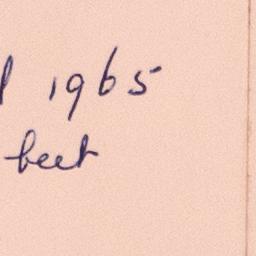 1965
beet